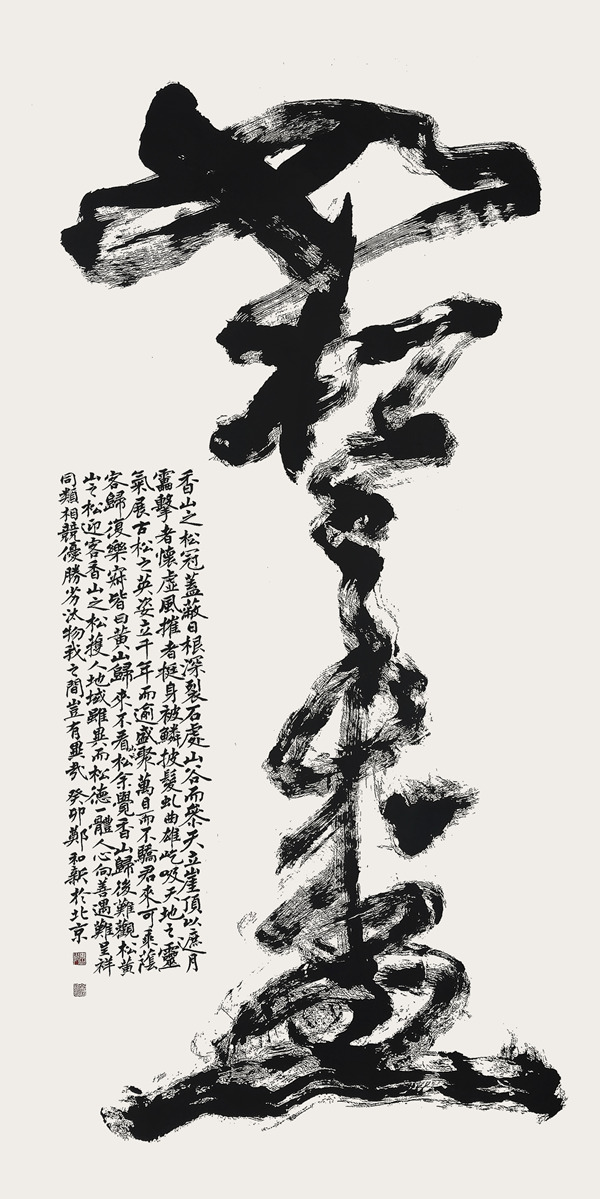 松來畫
香山之松冠蓋蔽日根深裂石處山谷而參天立崖頂以遮月
靁擊者懷虛風摧者挺身被鱗披髮虬曲雄屹吸天地之靈
氣展古松之英姿立千年而逾盛聚萬日而不驕君來可乘蔭
客歸復樂寂皆曰黃山歸來不看松余覺香山歸後難觀松黃
山之松迎客香山之松護人地域雖異而松德一體人心向善遇難呈祥
同類相競優勝劣汰物我之間豈有異哉 癸卯鄭和新於北京